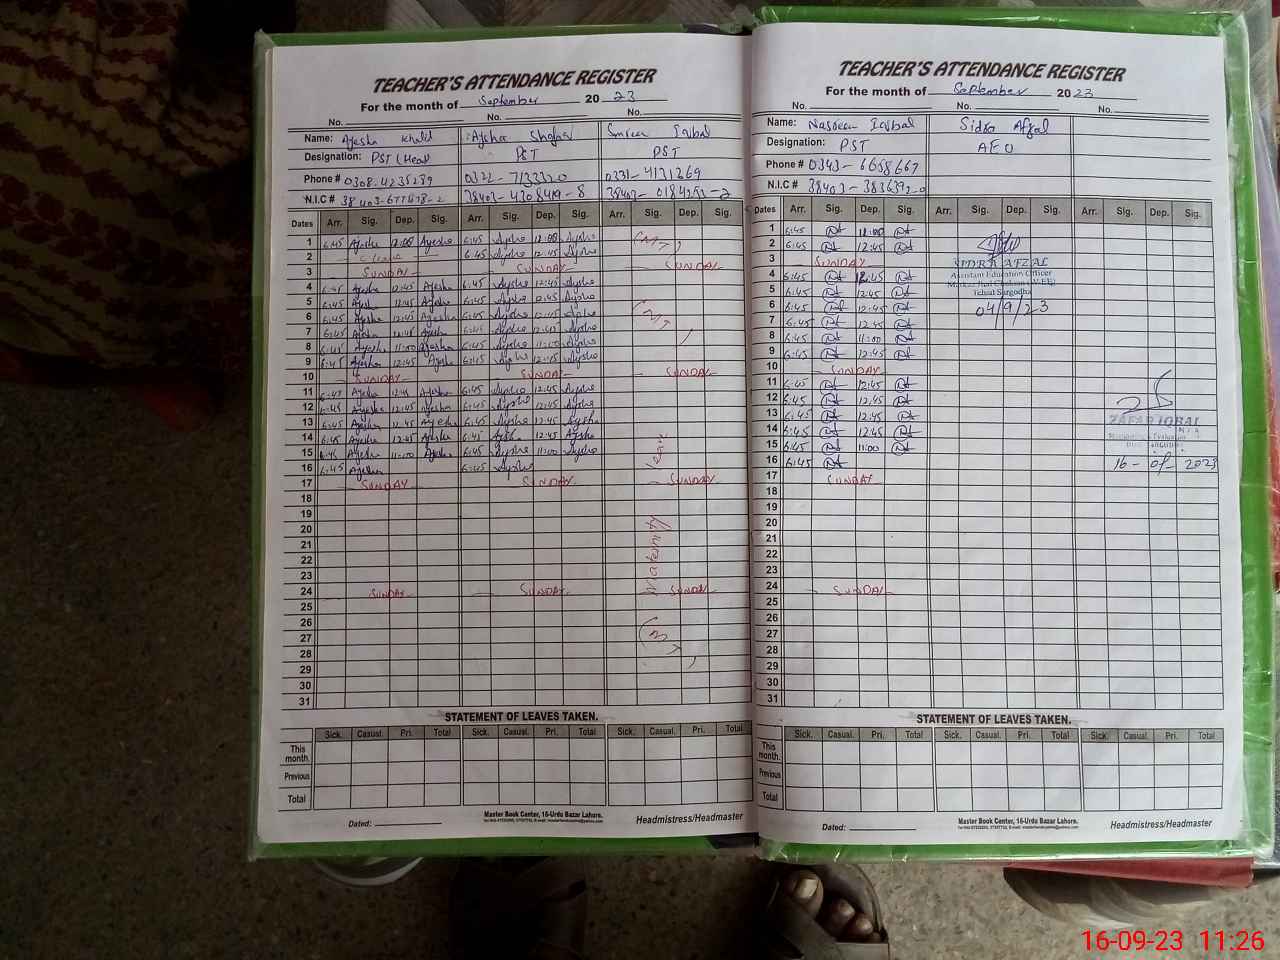 TEACHER'S ATTENDANCE REGISTER
For the month of September 20 23
No. No. No.
Name: Ayesha Khalid Aysha Iqbal
Designation: PST (Head PST PST
Phone # 0308-4235239 0322-7133320 0331-4131269
N.I.C # 38403-4308419-8
Dates Arr. Sig. Dep. Sig. Arr. Sig. Dep. Sig. Arr. Sig. Dep. Sig.
1 6:45 Ayesha 12:00 Ayesha 6:45 Aysha 12:00 Aysha
2 6:45 Aysha 12:45 Aysha
3 SUNDAY SUNDAY SUNDAY
4 6:45 Ayesha 12:45 Ayesha 6:45 Aysha 12:45 Aysha
5 6:45 12:45 Ayesha 6:45 Aysha 12:45 Aysha
6 6:45 Ayesha 12:45 Ayesha 6:45 Aysha 12:45 Aysha
7 6:45 Ayesha 12:45 Ayesha 6:45 Aysha 12:45 Aysha
8 6:45 Ayesha 11:00 Ayesha 6:45 Aysha 11:00 Aysha
9 6:45 Ayesha 12:45 Ayesha 6:45 Aysha 12:45 Aysha
10 SUNDAY SUNDAY
11 6:45 Ayesha 12:45 Ayesha 6:45 Aysha 12:45 Aysha
12 6:45 Ayesha 12:45 Ayesha 6:45 Aysha 12:45 Aysha
13 6:45 Ayesha 12:45 Ayesha 6:45 Aysha 12:45 Aysha
14 6:45 Ayesha 12:45 Ayesha 6:45 Aysha 12:45 Aysha
15 6:45 Ayesha 11:00 Ayesha 6:45 Aysha 11:00 Aysha
16 6:45 Ayesha 6:45 Aysha
17 SUNDAY SUNDAY SUNDAY
18
19
20
21
22
23
24 SUNDAY SUNDAY SUNDAY
25
26
27
28
29
30
31
Maternity Leave
STATEMENT OF LEAVES TAKEN.
Sick. Casual. Pri. Total Sick. Casual. Pri. Total Sick. Casual. Pri. Total
This month.
Previous
Total
Master Book Center, 16-Urdu Bazar Lahore.
Dated: Headmistress/Headmaster
TEACHER'S ATTENDANCE REGISTER
For the month of September 20 23
No. No. No.
Name: Nasreen Iqbal Sidra Afzal
Designation: PST AEO
Phone # 0343-6658667
N.I.C #
Dates Arr. Sig. Dep. Sig. Arr. Sig. Dep. Sig. Arr. Sig. Dep. Sig.
1 6:45 12:00
2 6:45 12:45
3 SUNDAY
4 6:45 12:45
5 6:45 12:45
6 6:45 12:45
7 6:45 12:45
8 6:45 11:00
9 6:45 12:45
10 SUNDAY
11 6:45 12:45
12 6:45 12:45
13 6:45 12:45
14 6:45 12:45
15 6:45 11:00
16 6:45
17 SUNDAY
18
19
20
21
22
23
24 SUNDAY
25
26
27
28
29
30
31
SIDRA AFZAL
Assistant Education Officer
Tehsil Sargodha
04/9/23
ZAFAR IQBAL
16-09-2023
STATEMENT OF LEAVES TAKEN.
Sick. Casual. Pri. Total Sick. Casual. Pri. Total Sick. Casual. Pri. Total
This month.
Previous
Total
Master Book Center, 16-Urdu Bazar Lahore.
Dated: Headmistress/Headmaster
16-09-23 11:26